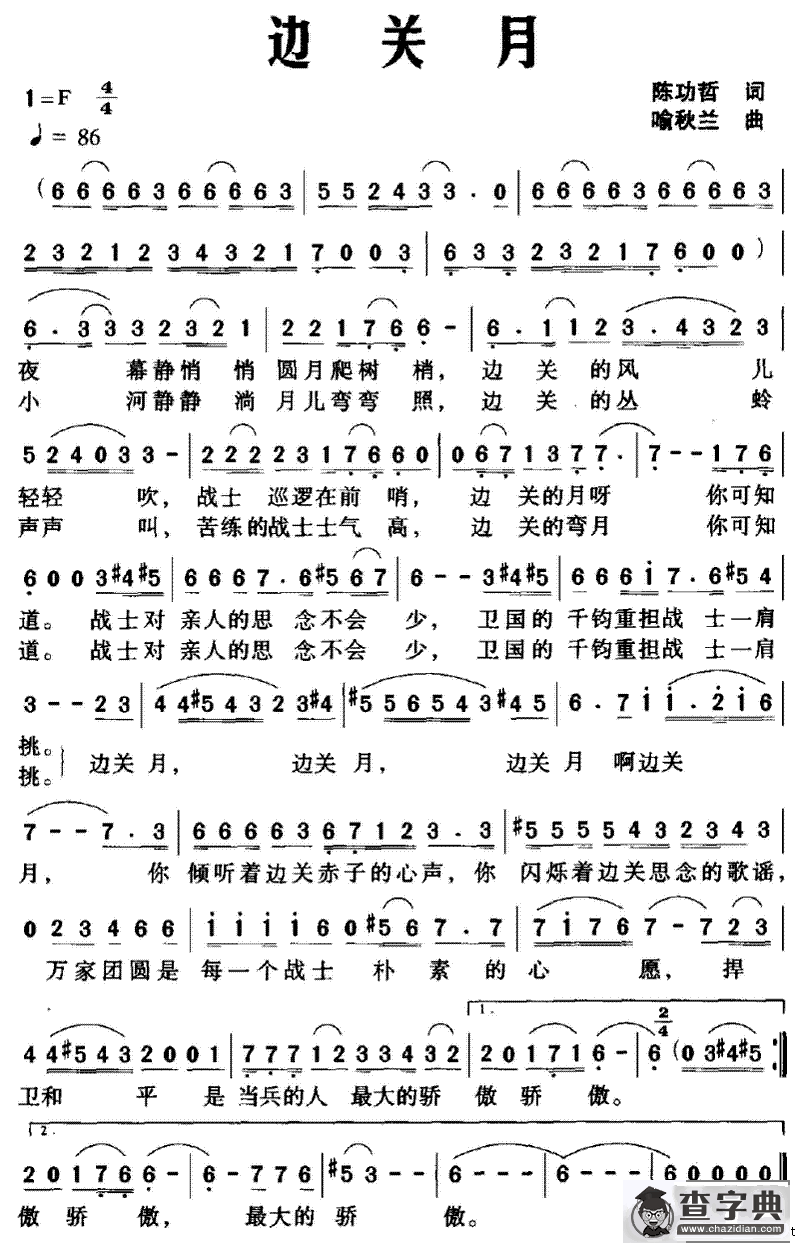 边 关 月
1=F 4/4
♩= 86
陈功哲 词
喻秋兰 曲
(6 6 6 6 6 3 6 6 6 6 6 3 | 5 5 2 4 3 3 3 . 0 | 6 6 6 6 6 3 6 6 6 6 6 3
2 3 2 1 2 3 4 3 2 1 7 0 0 3 | 6 3 3 2 3 2 1 7 6 0 0 )
6 . 3 3 3 2 3 2 1 | 2 2 1 7 6 6 - | 6 . 1 1 2 3 . 4 3 2 3
夜 幕静悄 悄 圆月爬树 梢， 边 关 的风 儿
小 河静静 淌 月儿弯弯 照， 边 关 的丛 蛉
5 2 4 0 3 3 - | 2 2 2 2 2 3 1 7 6 6 0 | 0 6 7 1 3 7 7 . 7 - - 1 7 6
轻轻 吹， 战士 巡逻在前 哨， 边 关的月呀 你可知
声声 叫， 苦练的战士士气 高， 边 关的弯月 你可知
6 0 0 3 #4 #5 | 6 6 6 7 . 6 #5 6 7 | 6 - - 3 #4 #5 | 6 6 6 i 7 . 6 #5 4
道。 战士对 亲人的思 念不会 少， 卫国的 千钧重担战 士一肩
道。 战士对 亲人的思 念不会 少， 卫国的 千钧重担战 士一肩
3 - - 2 3 | 4 4 #5 4 3 2 3 #4 | #5 5 6 5 4 3 #4 5 | 6 . 7 i i . 2 i 6
挑。
挑。
边关 月， 边关 月， 边关 月 啊边关
7 - - 7 . 3 | 6 6 6 6 3 6 7 1 2 3 . 3 | #5 5 5 5 4 3 2 3 4 3
月， 你 倾听着边关赤子的心声，你 闪烁着边关思念的歌谣，
0 2 3 4 6 6 | i i i i 6 0 #5 6 7 . 7 | 7 i 7 6 7 - 7 2 3
万家团圆是 每一个战士 朴 素 的 心 愿， 捍
4 4 #5 4 3 2 0 0 1 | 7 7 7 1 2 3 3 4 3 2 | 1. 2 0 1 7 1 6 - | 2/4 6 (0 3 #4 #5 :||
卫和 平 是 当兵的人 最大的骄 傲 骄 傲。
2. 2 0 1 7 6 6 - | 6 - 7 7 6 | #5 3 - - | 6 - - - | 6 - - - | 6 0 0 0 0
傲 骄 傲， 最大的 骄 傲。
查字典
www.chazidian.com
t